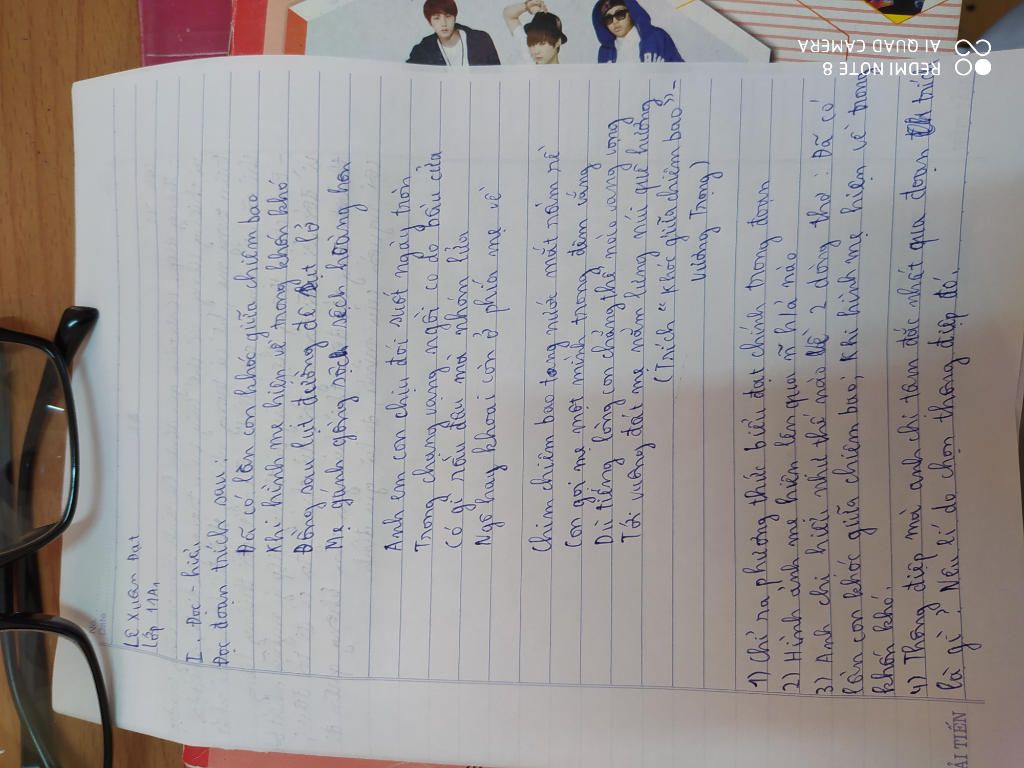 Lê Xuân Đạt
Lớp 11A1
I. Đọc - hiểu
Đọc đoạn trích sau:
Đã có lần con khóc giữa chiêm bao
Khi hình mẹ hiện về trong khốn khó
Đồng sau lụt đường đê sụt lở
Mẹ gánh gồng xộch xệch hoàng hôn
Anh em con chịu đói suốt ngày tròn
Trong chạng vạng ngồi co do bậu cửa
Có gì nấu đâu mà nhóm lửa
Ngô hay khoai còn ở phía mẹ về
Chiêm chiêm bao tong nuớt mắt nằm nề
Con gọi mẹ một mình trong đêm vắng
Dù tiếng lòng con chẳng thể nào vang vọng
Tới vuông đất mẹ nằm lưng núi quê hương
(Trích "Khóc giữa chiêm bao" -
Vương Trọng)
1) Chỉ ra phương thức biểu đạt chính trong đoạn
2) Hình ảnh mẹ hiện lên qua n~ h/á nào
3) Anh chị hiểu như thế nào về 2 dòng thơ: Đã có
lần con khóc giữa chiêm bao, Khi hình mẹ hiện về trong
khốn khó.
4) Thông điệp mà anh chị tâm đắc nhất qua đoạn trích
là gì? Nêu lí do chọn thông điệp đó.
No
Date
ẢI TIẾN
REDMI NOTE 8
AI QUAD CAMERA